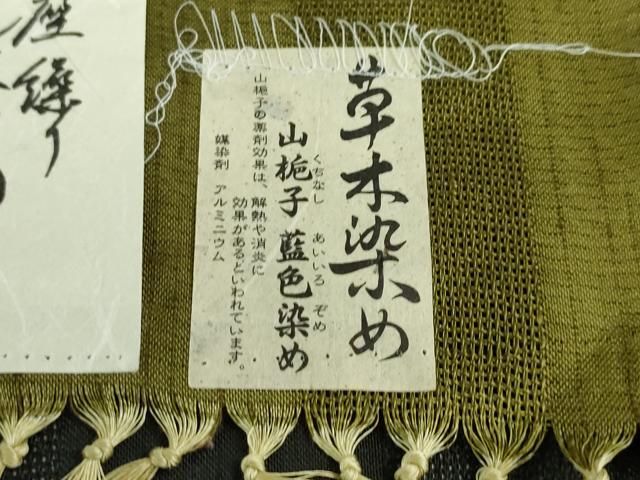 草木染め
くちなし あいいろ ぞめ
山梔子 藍色染め
山梔子の薬剤効果は、解熱や消炎に
効果があるといわれています。
媒染剤 アルミニウム
座繰り